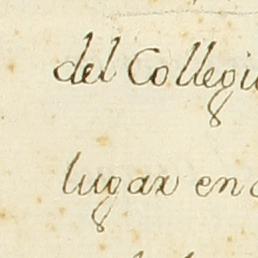 del Collegi
lugar en